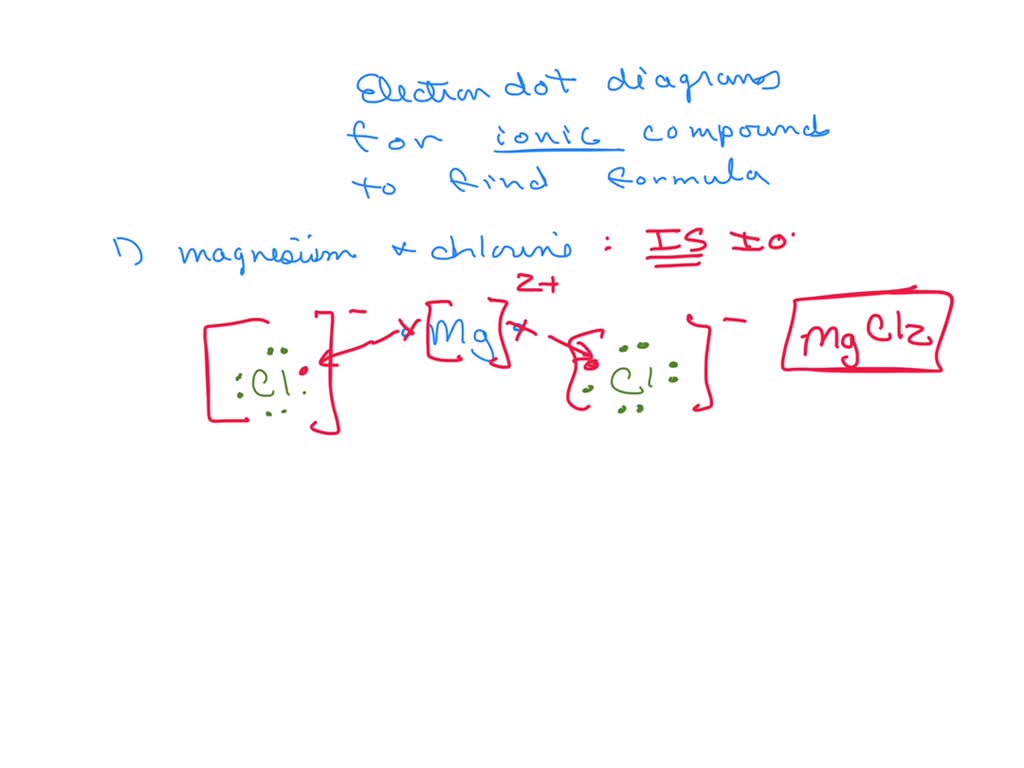 Electron dot diagrams
for ionic compound
to find formula
1) magnesium & chlorine : IS IO.
2+
[Cl]⁻ [Mg] [Cl]⁻ MgCl2